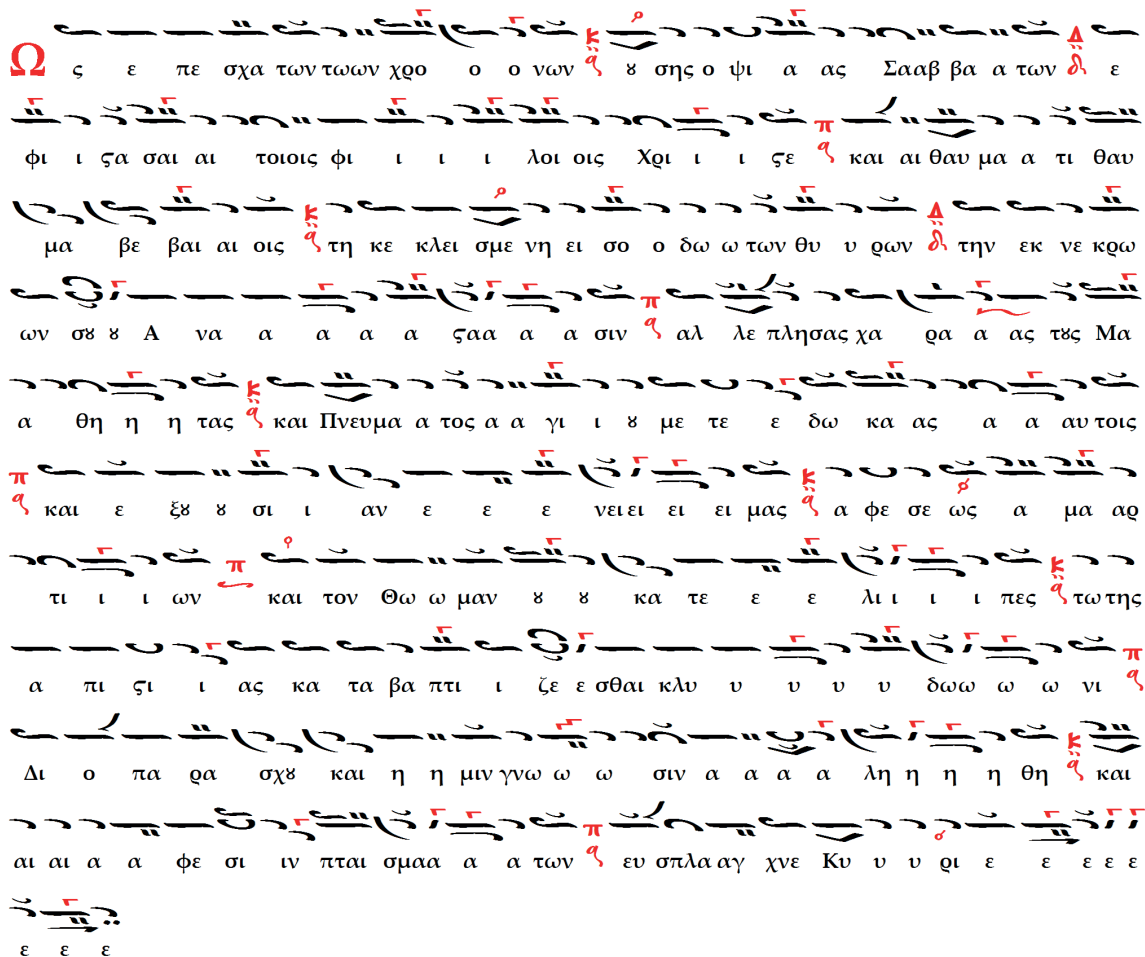 Ω ς ε πε σχα των τωων χρο ο ο νων κ ȣ σης ο ψι α ας Σααβ βα α των Δ ε
φι ι ϛα σαι αι τοιοις φι ι ι ι λοι οις Χρι ι ι ϛε π και αι θαυ μα α τι θαυ
μα βε βαι αι οις κ τη κε κλει σμε νη ει σο ο δω ω των θυ υ ρων Δ την εκ νε κρω
ων σȣ ȣ Α να α α α α ϛαα α α σιν π αλ λε πλησας χα ρα α ας τȣς Μα
α θη η η τας κ και Πνευμα α τος α α γι ι ȣ με τε ε δω κα ας α α αυ τοις
π και ε ξȣ ȣ σι ι αν ε ε ε νει ει ει ει μας κ α φε σε ως α μα αρ
τι ι ι ων π και τον Θω ω μαν ȣ ȣ κα τε ε ε λι ι ι ι πες κ τω της
α πι ϛι ι ας κα τα βα πτι ι ζε ε σθαι κλυ υ υ υ υ δωω ω ω νι π
Δι ο πα ρα σχȣ και η η μιν γνω ω ω σιν α α α α λη η η η θη κ και
αι αι α α φε σι ιν πται σμαα α α των π ευ σπλα αγ χνε Κυ υ υ ρι ε ε ε ε ε
ε ε ε